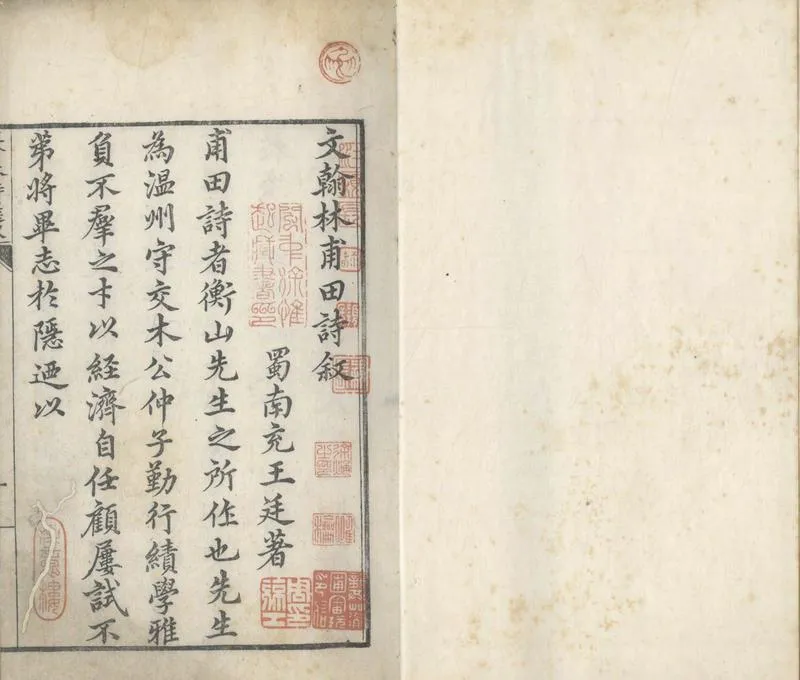 文翰林甫田詩叙
蜀南充王廷著
甫田詩者衡山先生之所作也先生
為温州守交木公仲子勤行績學雅
負不羣之才以經濟自任顧屢試不
第將畢志於隱迺以